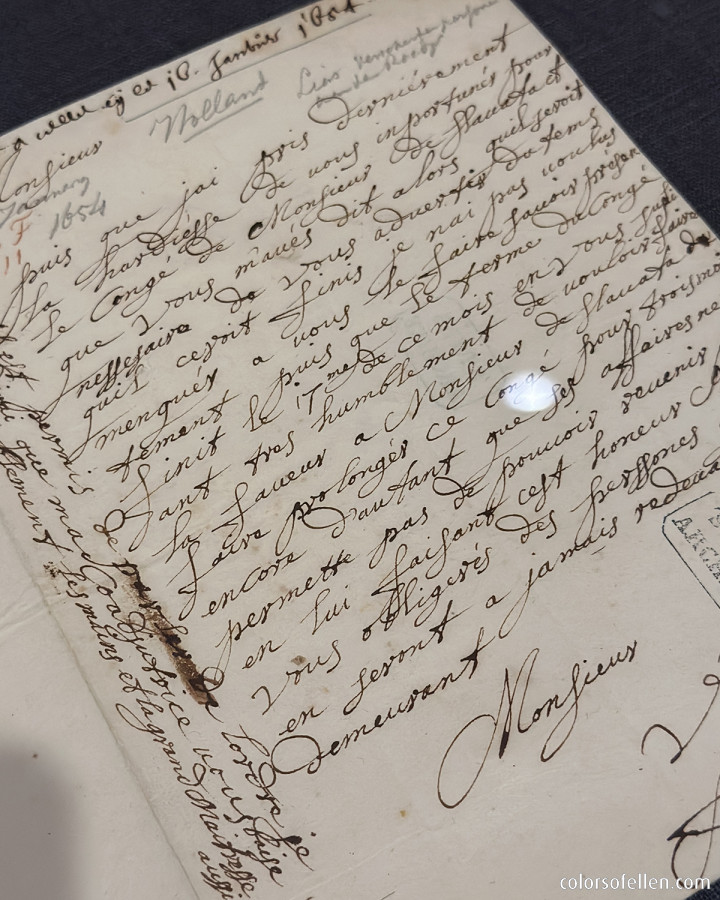 ce 16. Janvier 1654
Holland
Monsieur
January
1654
F
11
puis que jai pris dernièrement
la hardiesse de vous inportunér pour
le Congé de Monsieur de Slauata et
que vous m'aués dit alors quil seroit
nessesaire de vous aduertir du tems
quil ceroit finis je nai pas voulus
menquér a vous le faire sauoir presen
tement puis que le terme du Congé
finit le 17me de ce mois en vous supli
ant tres humblement de vouloir faire
la faveur a Monsieur de Slauata de
faire prolongér ce Congé pour trois moi
encore d'autant que ses affaires ne
permette pas de pouuoir reuenir
en lui faisant cest honeur
vous obligerés des perssones
en seront a jamais redeua
demeurant
Monsieur
est permis de
que ma Coadjutrice vous baise
les mains et la grand Maitresse
aussi
colorsofellen.com